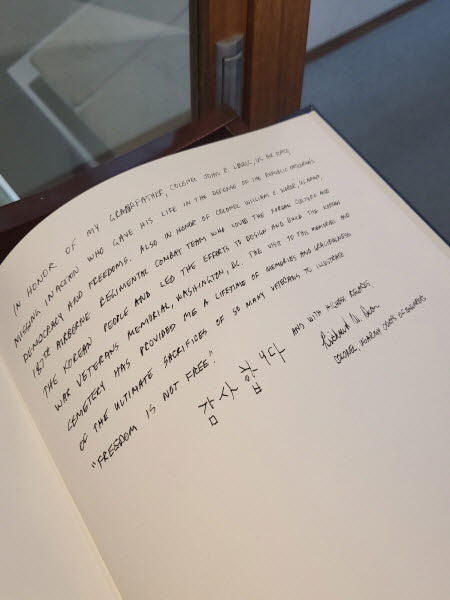 IN HONOR OF MY GRANDFATHER, COLONEL JOHN R. LOVELL, US AIR FORCE,
MISSING IN ACTION WHO GAVE HIS LIFE IN THE DEFENSE OF THE REPUBLIC OF KOREA'S
DEMOCRACY AND FREEDOMS. ALSO IN HONOR OF COLONEL WILLIAM E. WEBER, US ARMY,
187TH AIRBORNE REGIMENTAL COMBAT TEAM WHO LOVED THE KOREAN CULTURE AND
THE KOREAN PEOPLE AND LED THE EFFORTS TO DESIGN AND BUILD THE KOREAN
WAR VETERANS MEMORIAL, WASHINGTON, DC. THE VISIT TO THIS MEMORIAL AND
CEMETERY HAS PROVIDED ME A LIFETIME OF MEMORIES AND
OF THE ULTIMATE SACRIFICES OF SO MANY VETERANS TO ILLUSTRATE
"FREEDOM IS NOT FREE".
감사합니다 AND WITH HIGHEST REGARDS,
COLONEL, US ARMY CORPS OF ENGINEERS